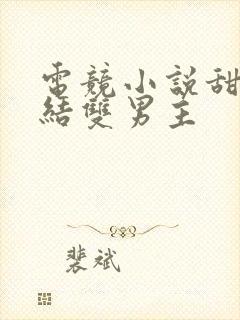 電競小說甜
結雙男主
裴斌